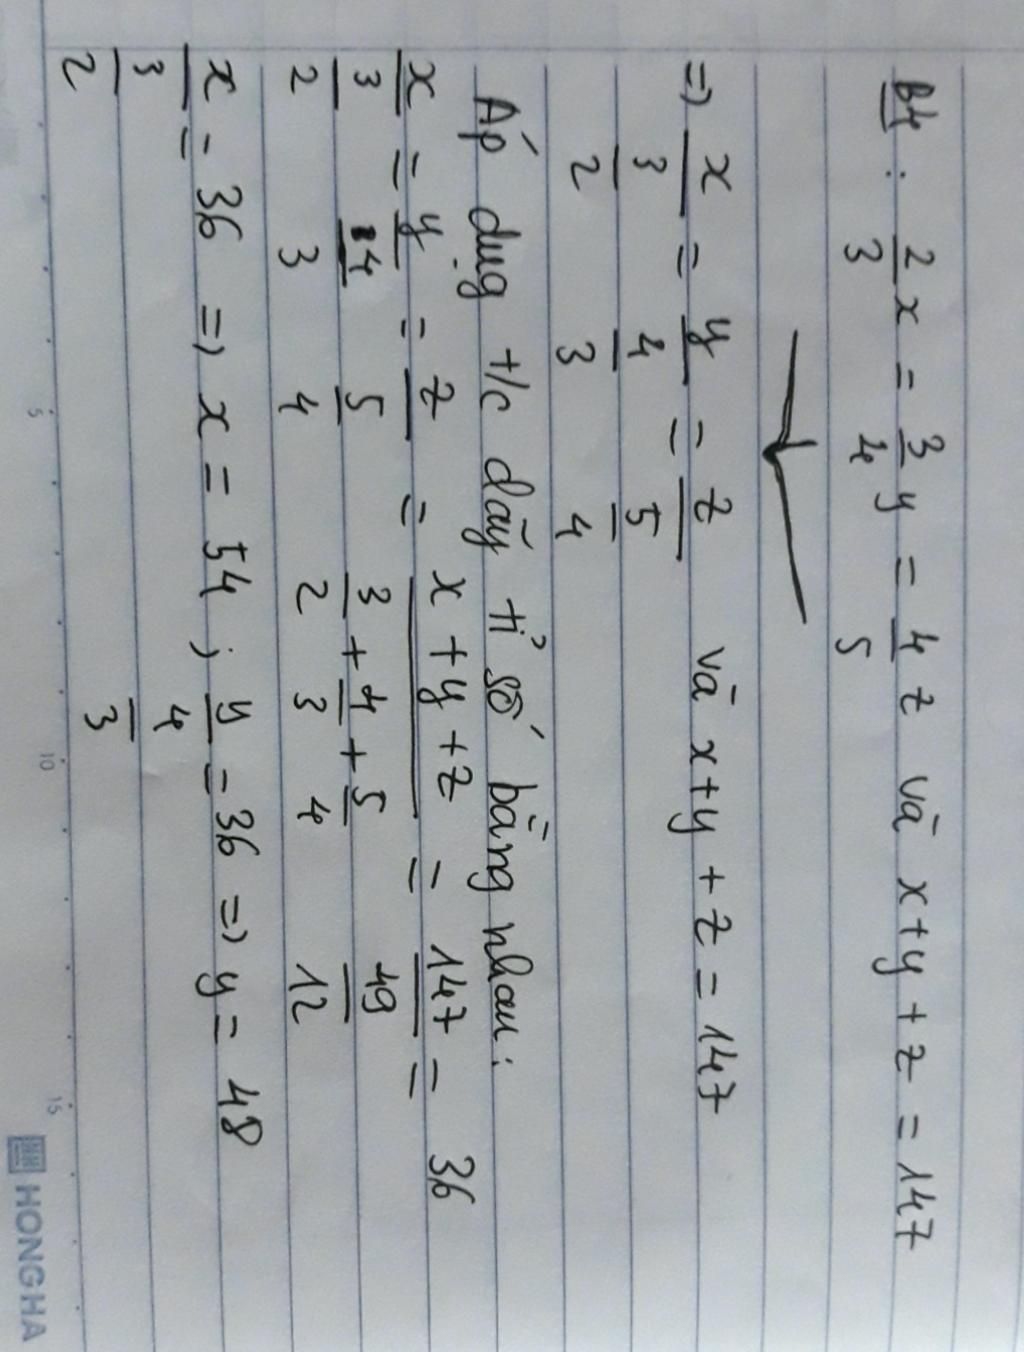 B4 : 2/3 x = 3/4 y = 4/5 z và x+y+z = 147
=> x/(3/2) = y/(4/3) = z/(5/4) và x+y+z = 147
Áp dụg t/c dãy tỉ số bằng nhau:
x/(3/2) = y/(4/3) = z/(5/4) = (x+y+z)/(3/2+4/3+5/4) = 147/(49/12) = 36
x/(3/2) = 36 => x = 54 ; y/(4/3) = 36 => y = 48
5 10 15
HONG HA